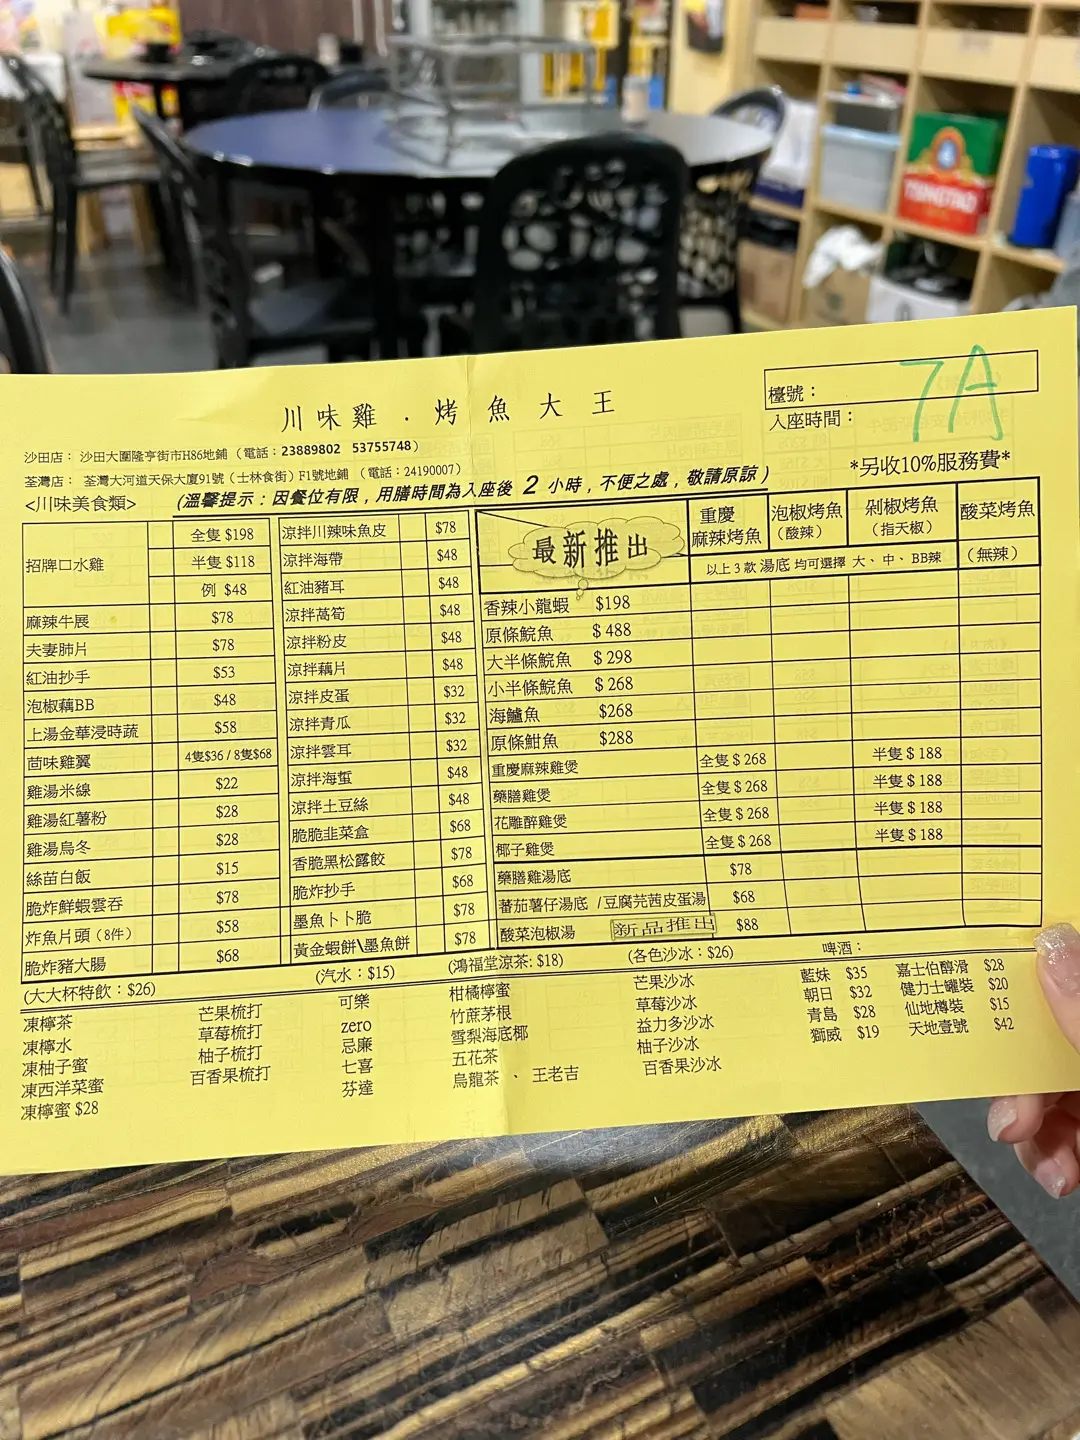 川味雞．烤魚大王
檯號：7A
入座時間：
沙田店： 沙田大圍隆亨街市H86地鋪（電話：23889802 53755748）
荃灣店： 荃灣大河道天保大廈91號（士林食街）F1號地鋪 （電話：24190007）
*另收10%服務費*
<川味美食類>
(溫馨提示：因餐位有限，用膳時間為入座後 2 小時，不便之處，敬請原諒)
招牌口水雞 全隻 $198
半隻 $118
例 $48
麻辣牛展 $78
夫妻肺片 $78
紅油抄手 $53
泡椒藕BB $48
上湯金華浸時蔬 $58
茴味雞翼 4隻$36 / 8隻$68
雞湯米線 $22
雞湯紅薯粉 $28
雞湯烏冬 $28
絲苗白飯 $15
脆炸鮮蝦雲吞 $78
炸魚片頭（8件） $58
脆炸豬大腸 $68
涼拌川辣味魚皮 $78
涼拌海帶 $48
紅油豬耳 $48
涼拌萵筍 $48
涼拌粉皮 $48
涼拌藕片 $48
涼拌皮蛋 $32
涼拌青瓜 $32
涼拌雲耳 $32
涼拌海蜇 $48
涼拌土豆絲 $48
脆脆韭菜盒 $68
香脆黑松露餃 $78
脆炸抄手 $68
墨魚卜卜脆 $78
黃金蝦餅\墨魚餅 $78
最新推出
重慶麻辣烤魚
泡椒烤魚（酸辣）
剁椒烤魚（指天椒）
酸菜烤魚（無辣）
以上3款湯底 均可選擇 大、中、BB辣
香辣小龍蝦 $198
原條鯇魚 $ 488
大半條鯇魚 $ 298
小半條鯇魚 $ 268
海鱸魚 $268
原條鮒魚 $288
重慶麻辣雞煲 全隻 $ 268 半隻 $ 188
藥膳雞煲 全隻 $ 268 半隻 $ 188
花雕醉雞煲 全隻 $ 268 半隻 $ 188
椰子雞煲 全隻 $ 268 半隻 $ 188
藥膳雞湯底 $78
蕃茄薯仔湯底 /豆腐芫茜皮蛋湯 $68
酸菜泡椒湯 新品推出 $88
(大大杯特飲：$26)
凍檸茶
凍檸水
凍柚子蜜
凍西洋菜蜜
凍檸蜜 $28
芒果梳打
草莓梳打
柚子梳打
百香果梳打
(汽水：$15)
可樂
zero
忌廉
七喜
芬達
(鴻福堂涼茶: $18)
柑橘檸蜜
竹蔗茅根
雪梨海底椰
五花茶
烏龍茶 、 王老吉
(各色沙冰：$26)
芒果沙冰
草莓沙冰
益力多沙冰
柚子沙冰
百香果沙冰
啤酒：
藍妹 $35
朝日 $32
青島 $28
獅威 $19
嘉士伯醇滑 $28
健力士罐裝 $20
仙地樽裝 $15
天地壹號 $42
TSINGTAO